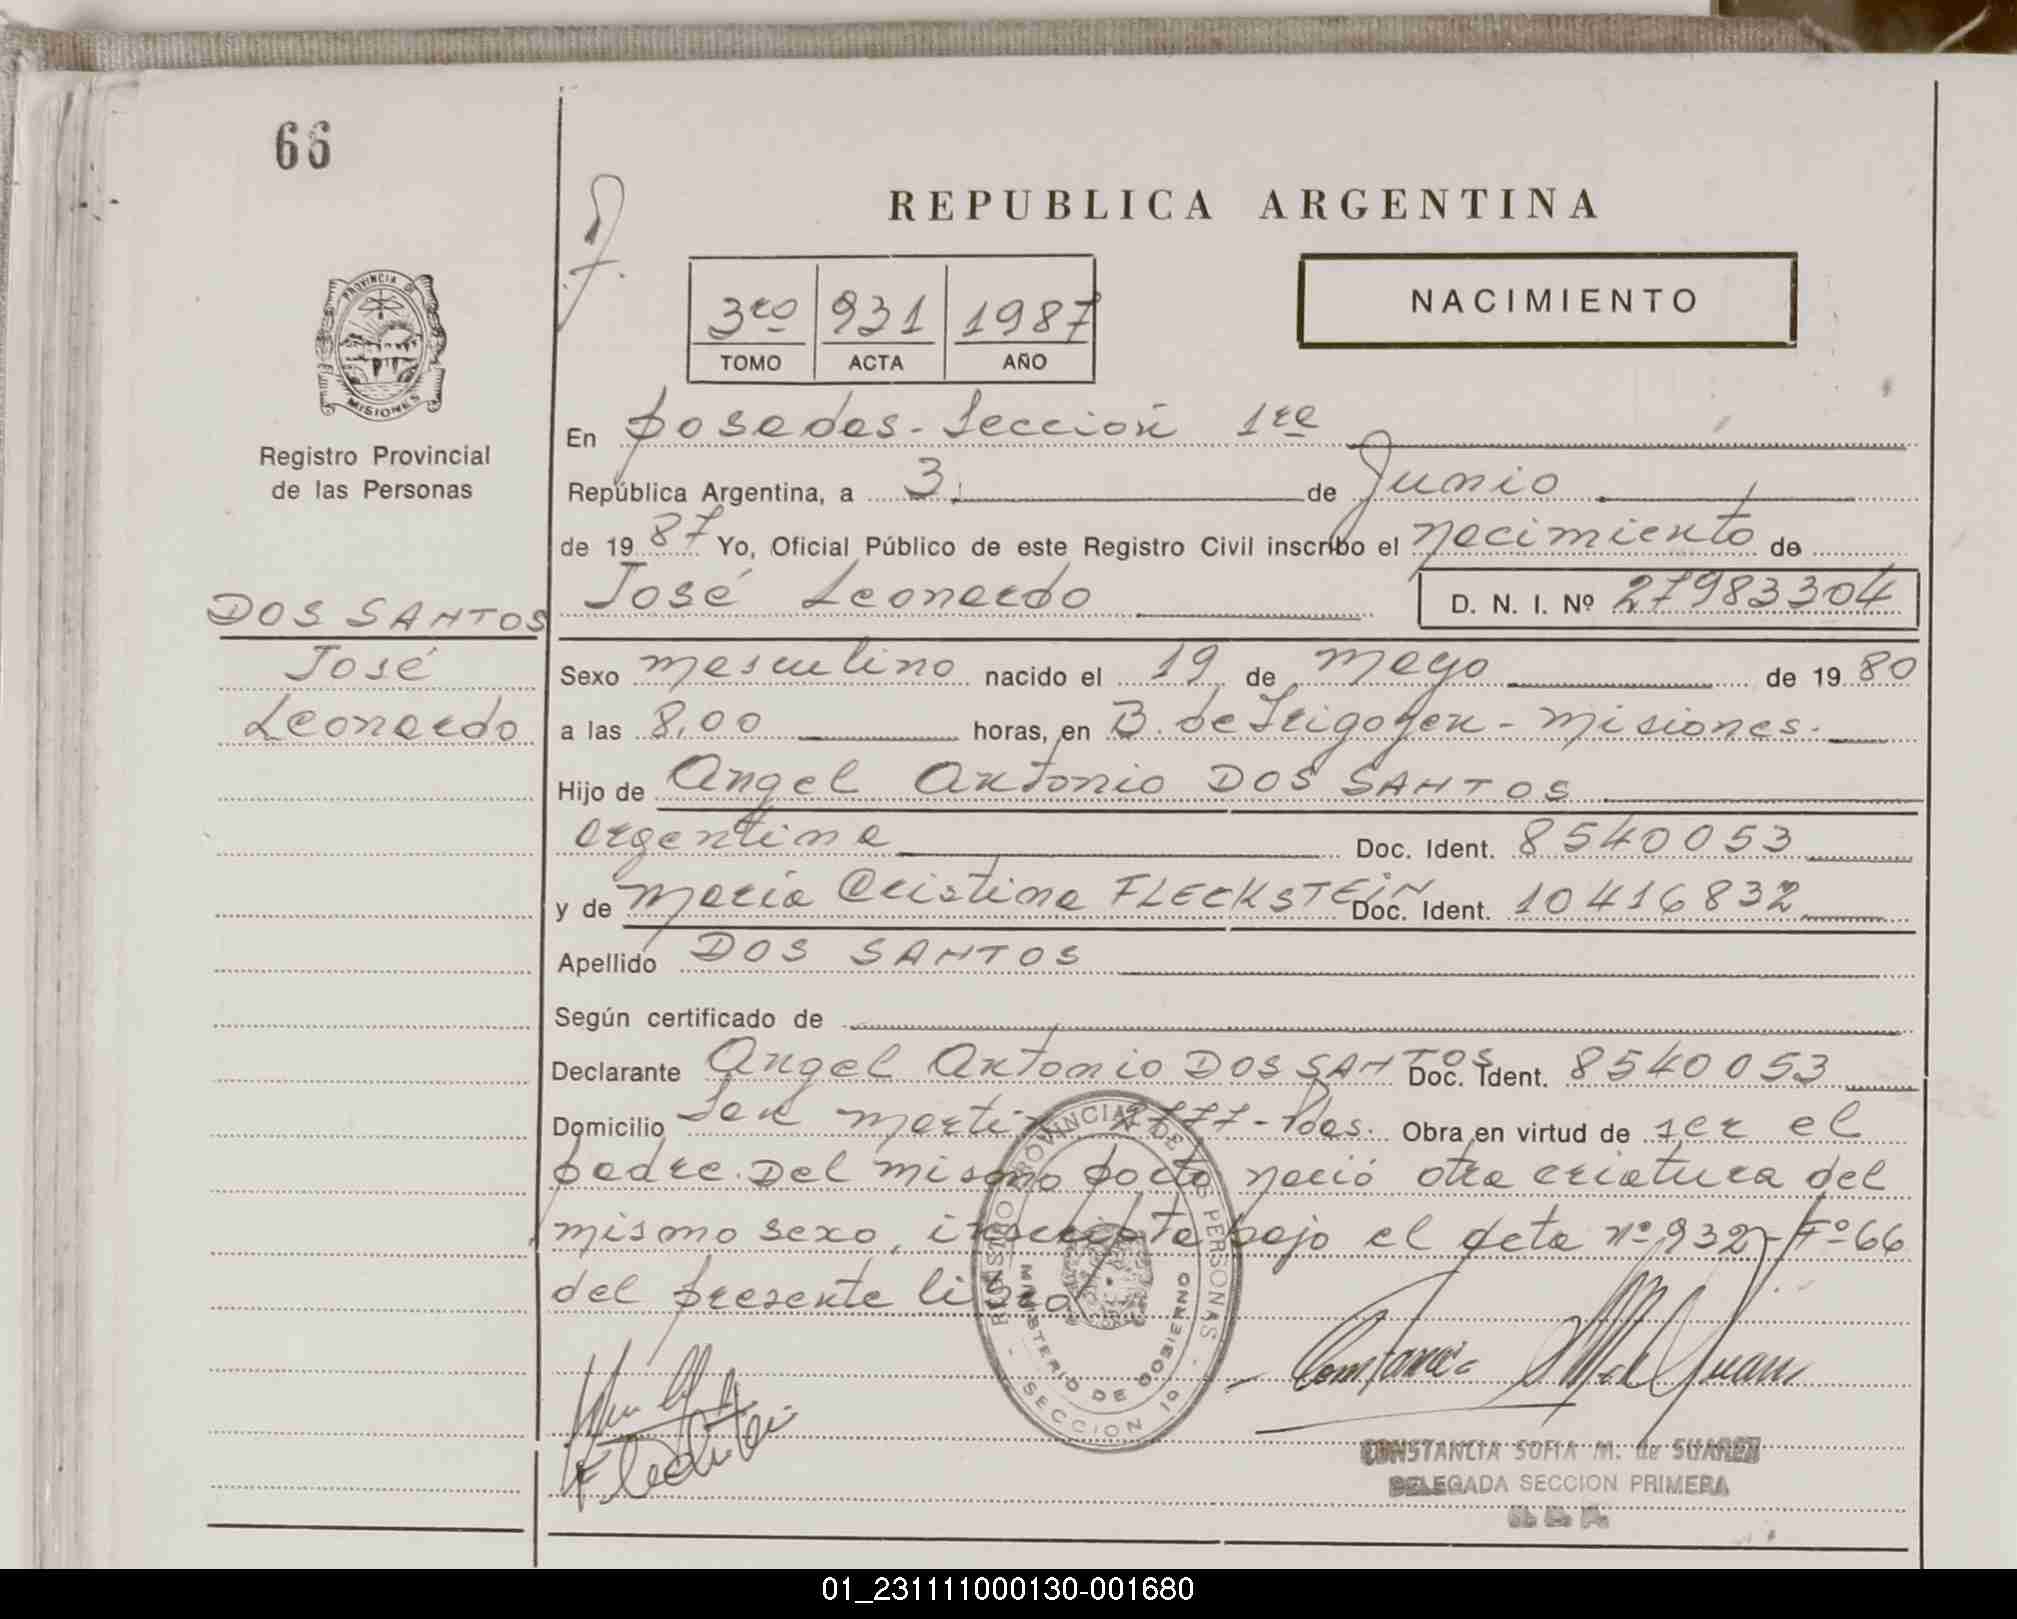 66
REPUBLICA ARGENTINA
PROVINCIA DE
MISIONES
Registro Provincial
de las Personas
3ro 931 1987
TOMO ACTA AÑO
NACIMIENTO
En Posadas - Sección 1ra
República Argentina, a 3 de Junio
de 1987 Yo, Oficial Público de este Registro Civil inscribo el nacimiento de
José Leonardo D. N. I. Nº 27983304
DOS SANTOS
José
Leonardo
Sexo masculino nacido el 19 de mayo de 1980
a las 8,00 horas, en B. de Irigoyen - Misiones.
Hijo de Angel Antonio DOS SANTOS
argentina Doc. Ident. 8540053
y de María Cristina FLECKSTEIN Doc. Ident. 10416832
Apellido DOS SANTOS
Según certificado de
Declarante Angel Antonio DOS SANTOS Doc. Ident. 8540053
Domicilio San Martín - Pdas. Obra en virtud de ser el
padre. Del mismo parto nació otra criatura del
mismo sexo, inscripta bajo el acta nº 932 - Fº 66
del presente libro
REGISTRO PROVINCIAL DE LAS PERSONAS
MINISTERIO DE GOBIERNO
SECCION 1º
CONSTANCIA SOFIA M. de SUAREZ
DELEGADA SECCION PRIMERA
01_231111000130-001680